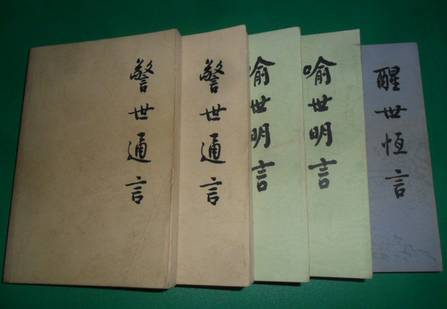 警世通言
警世通言
喻世明言
喻世明言
醒世恆言